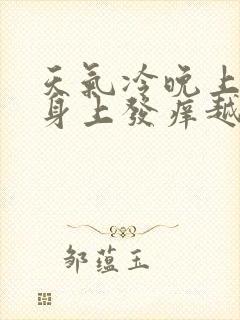 天氣冷晚上
身上發癢越
邹蕴玉